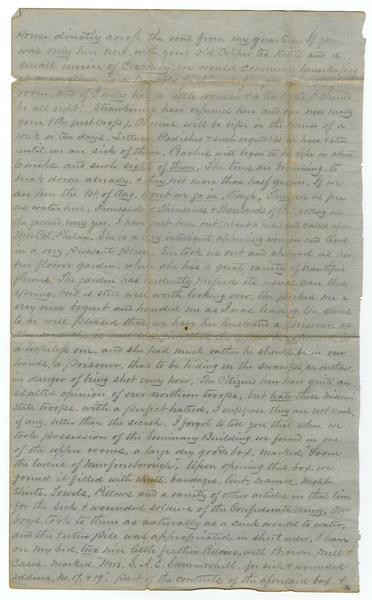 House directly across the road from my quarters. If you
was only here now, with your old Copper tea Kettle and a
small invoice of Crockery, we would commence housekeeping
room, and if I only had a little woman & a tea Kettle, I should
be all right. Strawberries have ripened here and are now nearly
gone (the first crop), Cherries will be ripe in the course of a
week or ten days. Lettuce, Radishes & such vegetables we have eaten
until we are sick of them. Peaches will begin to be ripe in about
6 weeks and such sights of them. The trees are beginning to
break down already, & they not more than half grown. If we
are here the 1st of Aug. wont we go in, though, They are as free
as water here. Thousands & Thousands & Thousands of Bu. rotting on
the ground every year. I have just been out (about a mile) and called upon
Mrs Col. Phelan. She is a very intelligent appearing woman and lives
in a very pleasant place. She took us out and showed us
her flower garden, where she has a great variety of beautiful
flowers. The garden has evidently missed its usual care this
Spring, but is still well worth looking over. She picked me a
very nice boquet and handed me as I was leaving. She seems
to be well pleased that we have her husband a prisoner, as
a hopeless one, and she had much rather he should be in our
hands, a prisoner, than to be hiding in the swamps, an outlaw,
in danger of being shot every hour. The Citizens here have quite an
exalted opinion of our northern troops, but hate these Missouri
State troops with a perfect hatred, I suppose they are not much,
if any, better than the secesh. I forgot to tell you that when we
took possession of the Seminary Building, we found in one
of the upper rooms, a large dry goods box, marked, From
the ladies of Murfreesborough. Upon opening this box, we
found it filled with shirts, bandages, lint, Drawers, Night
Shirts, Towels, Pillows and a variety of other articles in that line
for the Sick & wounded soldiers of the Confederate Army. Our
boys took to them as naturally as a duck would to water,
and the entire pile was appropriated in short order. I have
on my bed, two nice little feather Pillows, with Brown Mill
Cases. marked Mrs. G. A. E. Summerhill. for sick & wounded
soldiers, No. 17. & 19. part of the contents of the aforesaid box. &